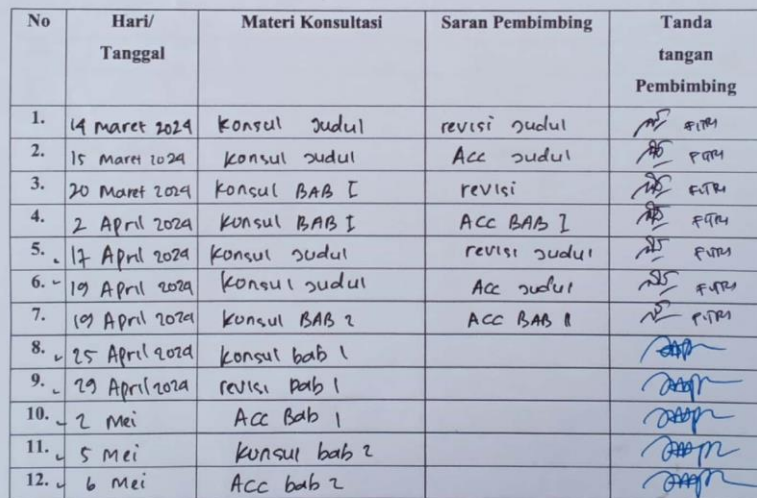 No Hari/ Tanggal Materi Konsultasi Saran Pembimbing Tanda tangan Pembimbing
1. 14 Maret 2024 Konsul Judul revisi Judul FITRI
2. 15 Maret 2024 Konsul Judul Acc Judul FITRI
3. 20 Maret 2024 Konsul BAB I revisi FITRI
4. 2 April 2024 Konsul BAB I ACC BAB I FITRI
5. 17 April 2024 Konsul Judul revisi Judul FITRI
6. 19 April 2024 Konsul Judul Acc Judul FITRI
7. 19 April 2024 Konsul BAB 2 ACC BAB FITRI
8. 25 April 2024 Konsul bab 1
9. 29 April 2024 revisi bab 1
10. 2 Mei Acc Bab 1
11. 5 Mei Konsul bab 2
12. 6 Mei Acc bab 2